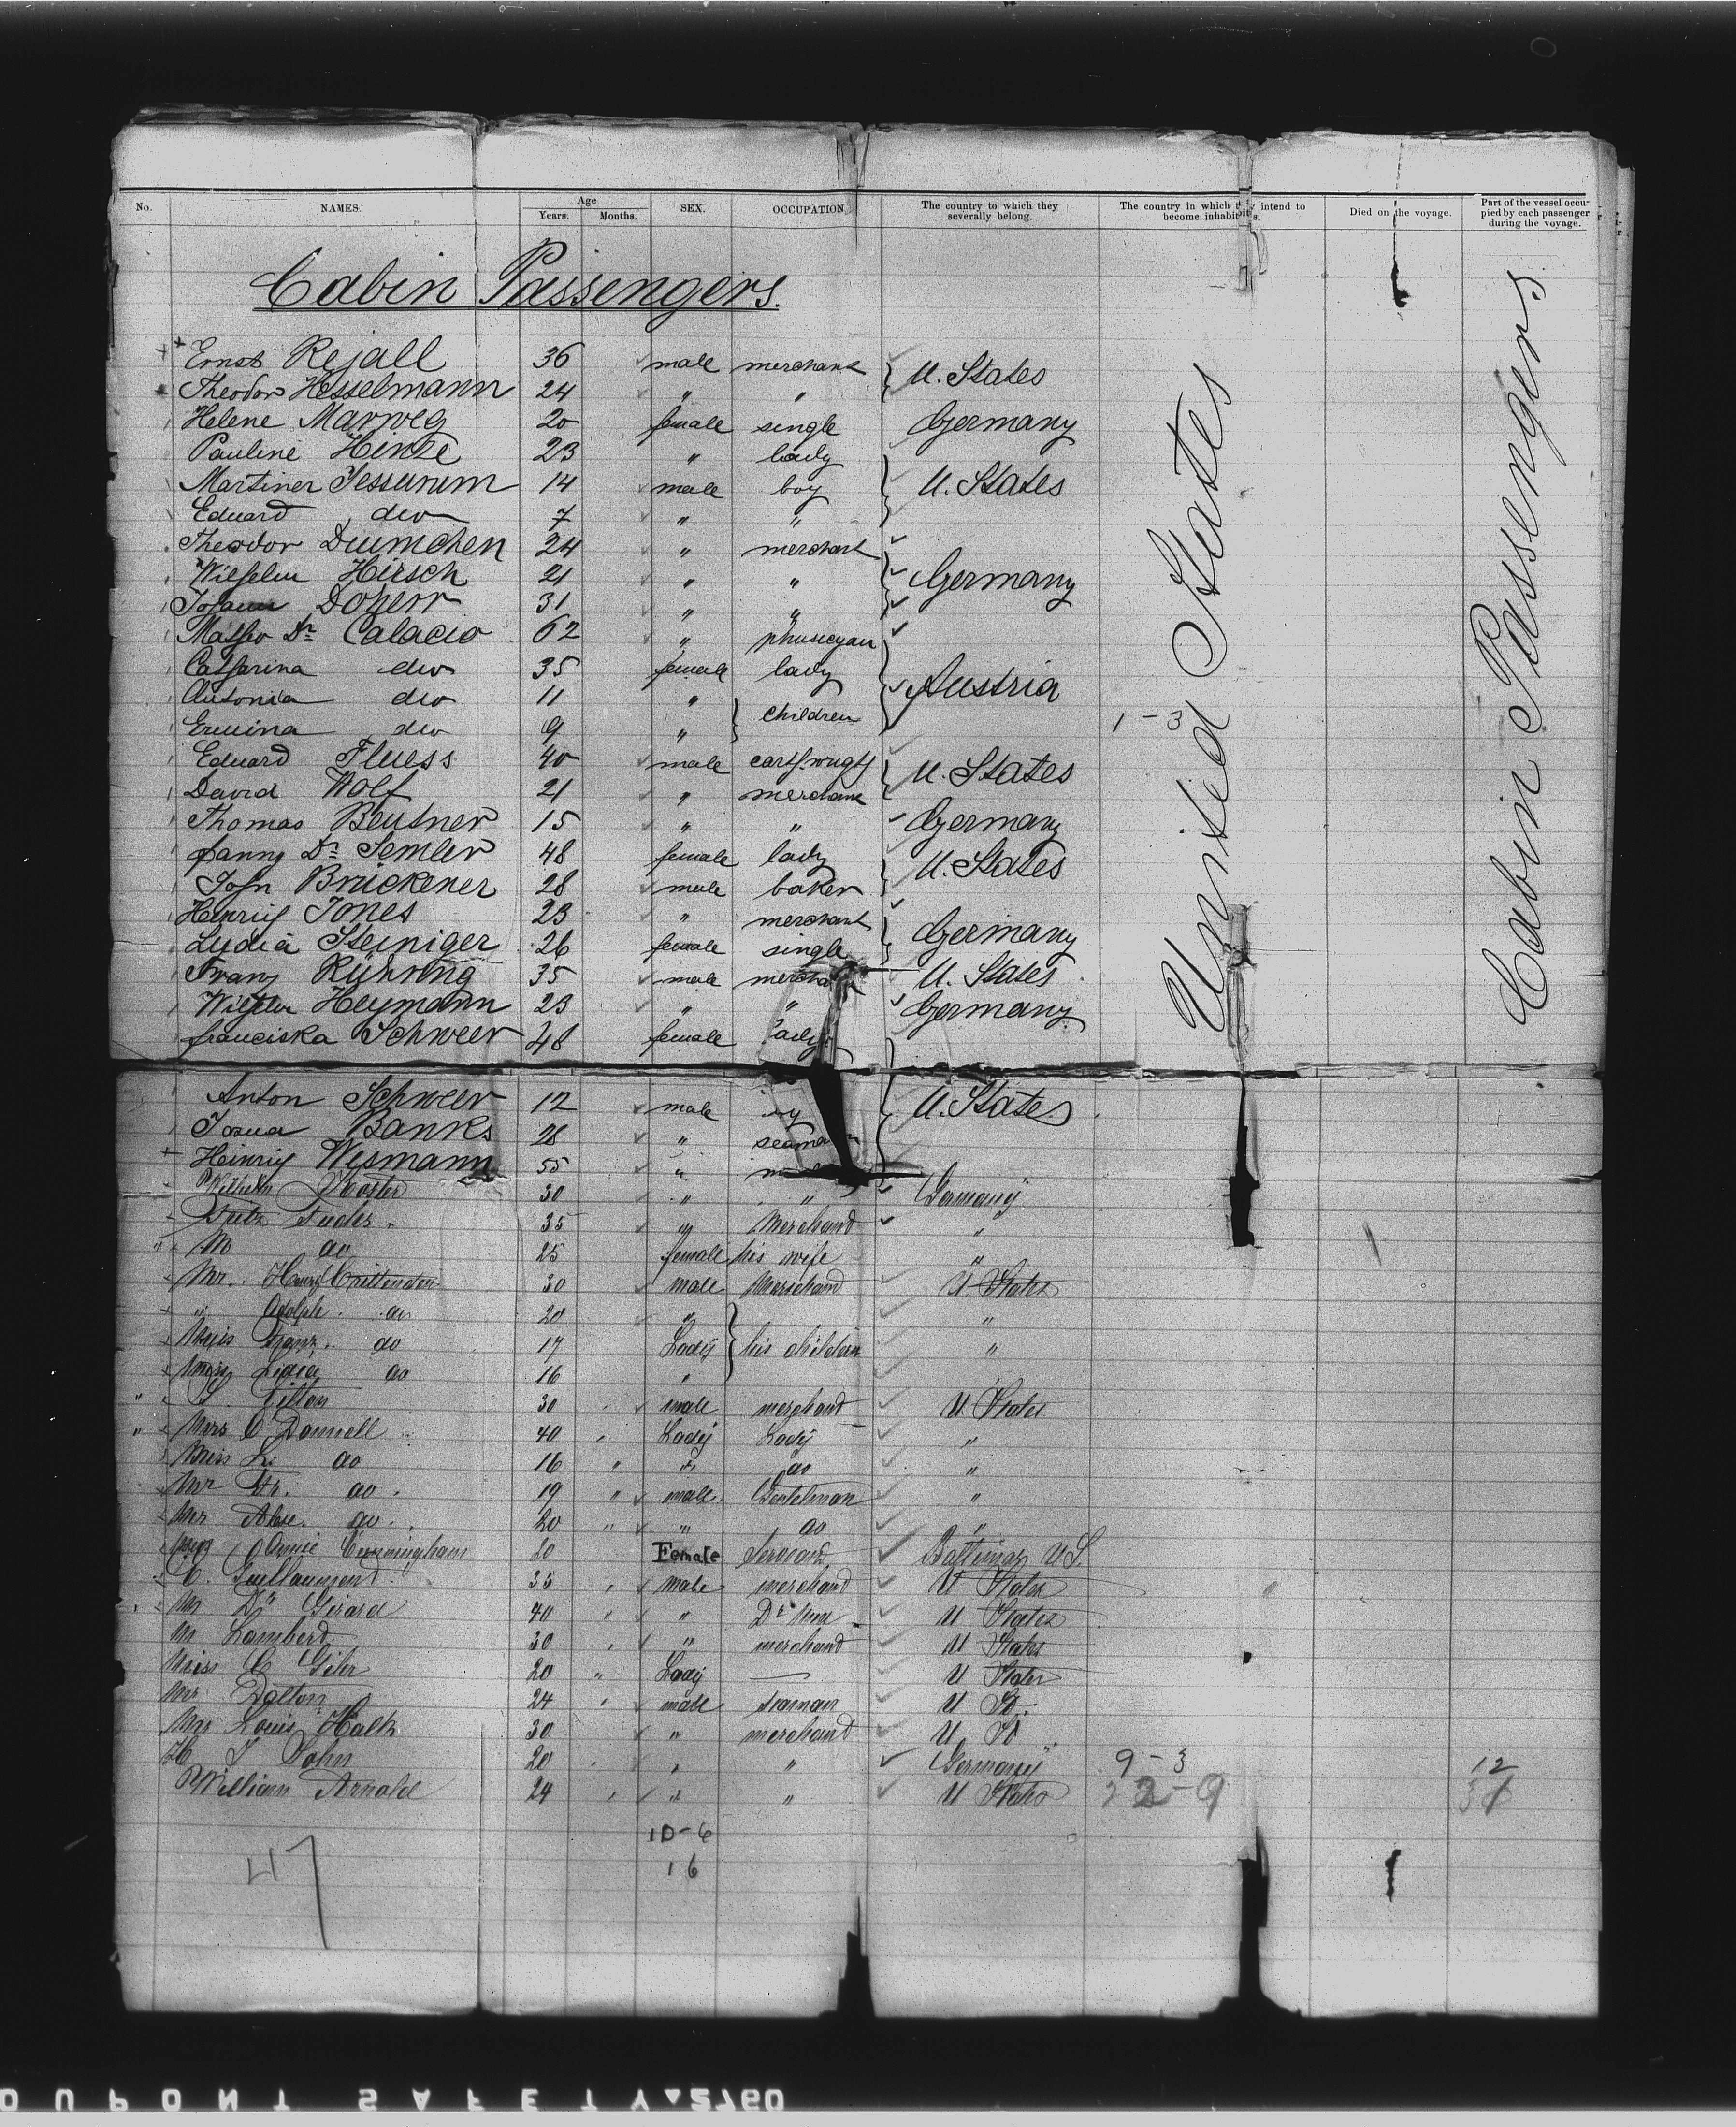 No. NAMES. Age Years. Months. SEX. OCCUPATION. The country to which they severally belong. The country in which they intend to become inhabitants. Died on the voyage. Part of the vessel occupied by each passenger during the voyage.
Cabin Passengers.
Ernst Rejall 36 male merchant
U. States
Theodor Hesselmann 24 " "
Helene Marweg 20 female single Germany
Pauline Hintze 23 " lady
Martiner Jessurum 14 male boy U. States
Eduard dito 7 " "
Theodor Duimchen 24 " merchant
Wilhelm Hirsch 21 " " Germany
Johann Doherr 31 " "
Matheo Dr Calacio 62 " phusicyan
Catharina dito 35 female lady Austria
Antonia dito 11 "
children
Ermina dito 9 " 1-3
Eduard Fluess 40 male
U. States
David Wolf 21 " merchant
Thomas Beutner 15 " " Germany
Fanny Dr Semler 48 female lady U. States
John Brückener 28 male baker
Heinrich Jones 23 " merchant Germany
Lydia Steiniger 26 female single
Franz Rühring 35 male mercha U. States
Wilhelm Heymann 23 " " Germany
Franciska Schweer 48 female lady
United States
Cabin Passengers
Anton Schweer 12 male U. States
Josua Banks 28 " seaman
Heinrich Wesmann 55 "
Wilhelm Koster 30 " " Germany
35 " Merchand "
M do 25 female his wife "
Mr. Henry Crittenden 30 male Merschand U States
" Adolph. do 20 " "
Franz. do 17 Lady his children "
Lidia do 16 "
Tilton 30 male merchand U States
Mrs O'Donnell 40 Lady Lady "
Miss L. do 16 " " do "
Mr Fr. do. 19 " male Gentelman "
Mr do. 20 " " do "
Annie Cunningham 20 Female Servant U S.
C. Guillaumend 35 male merchand U States
M Dr Gerard 40 " " Dr U States
M Lamberd 30 " merchand U States
Miss C 20 " Lady — U States
Mr Dalton 24 male seaman U St.
Mr Louis Halk 30 " merchand U St.
H J John 20 " " Germany 9-3 12
William Arnold 24 " " U States 22-9 31
10-6
47 16
DUPONT SAFETY 2760